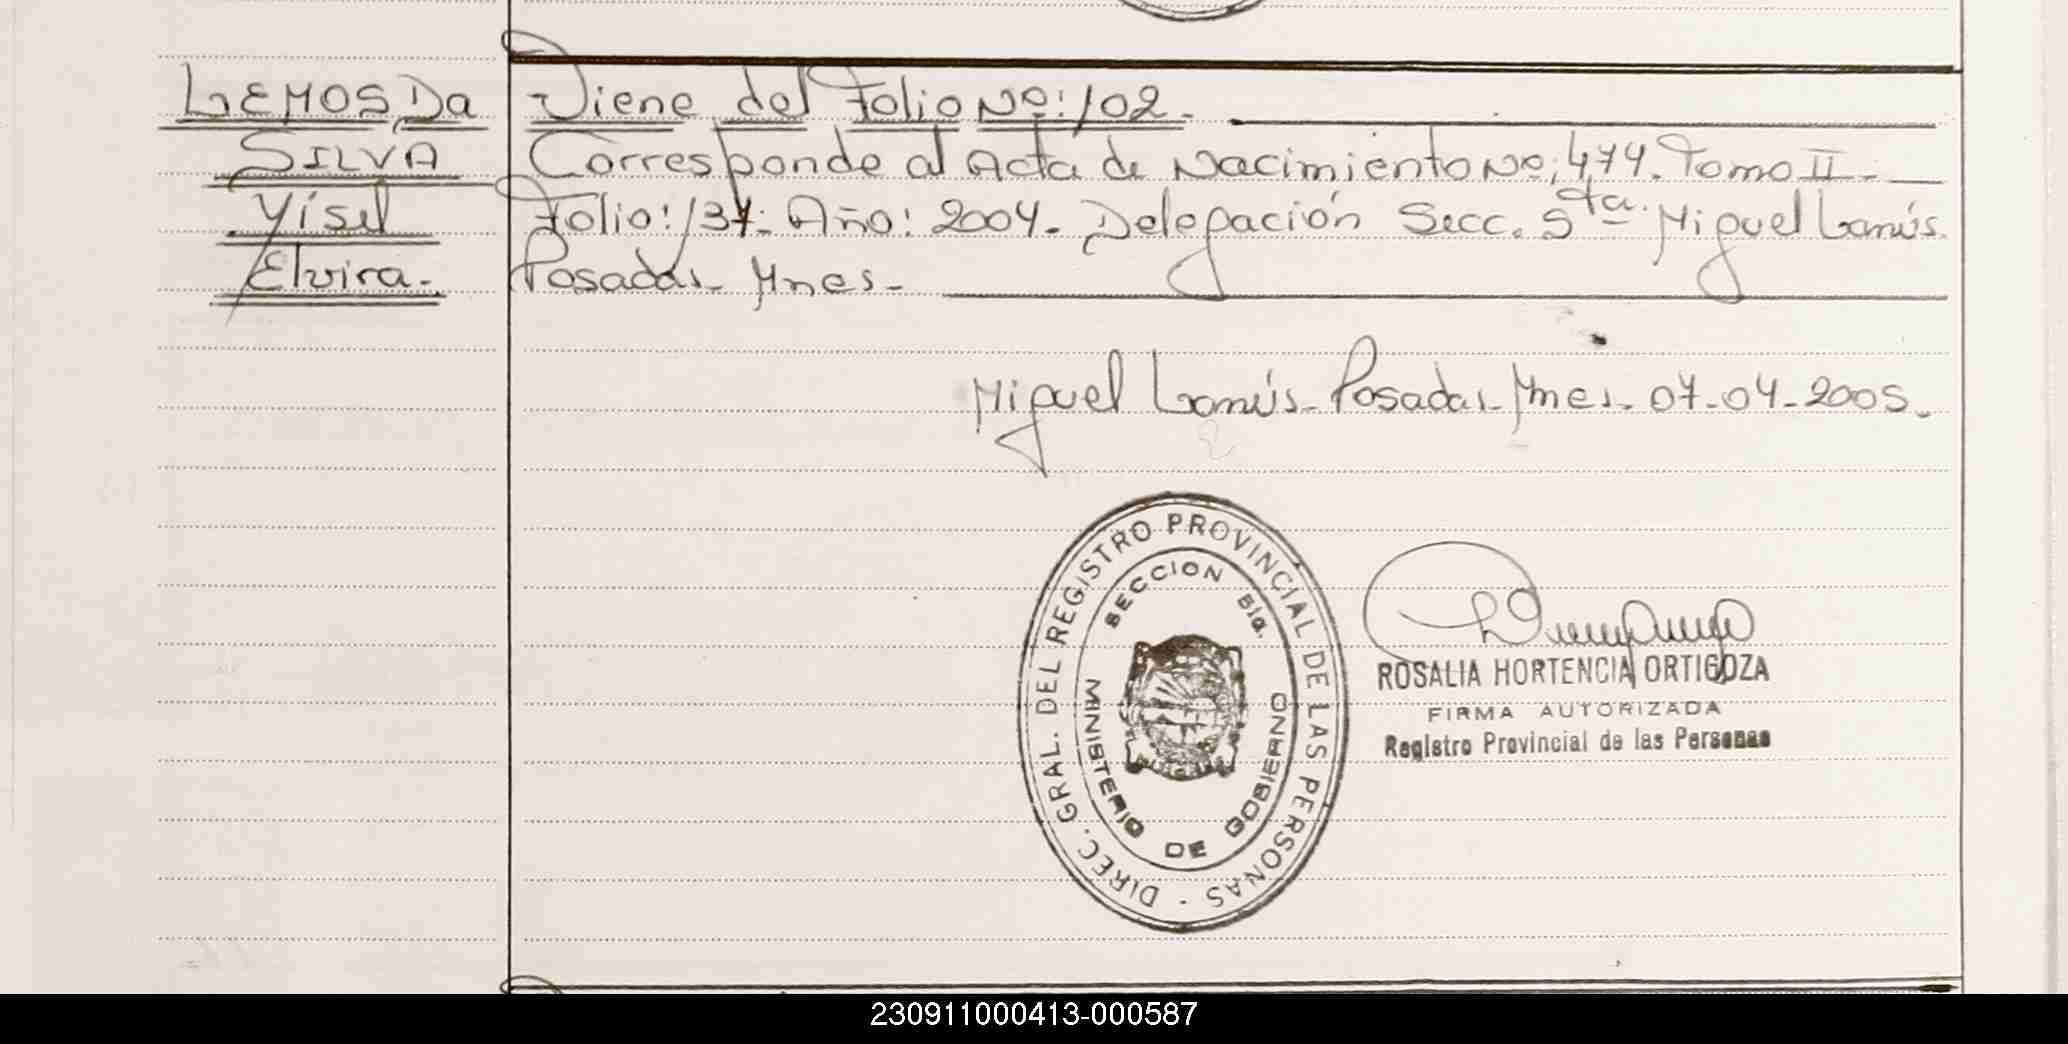 LEMOS Da
SILVA
Yisel
Elvira.-
Viene del Folio Nº:102.-
Corresponde al Acta de Nacimiento Nº:474. Tomo II.-
Folio:137. Año: 2004. Delegación Secc. 5ta. Miguel Lanús.
Posadas- Mnes.-
Miguel Lanús- Posadas- Mnes- 07-04-2005.
DIREC. GRAL. DEL REGISTRO PROVINCIAL DE LAS PERSONAS
SECCION 5ta.
MINISTERIO DE GOBIERNO
ROSALIA HORTENCIA ORTIGOZA
FIRMA AUTORIZADA
Registro Provincial de las Personas
230911000413-000587